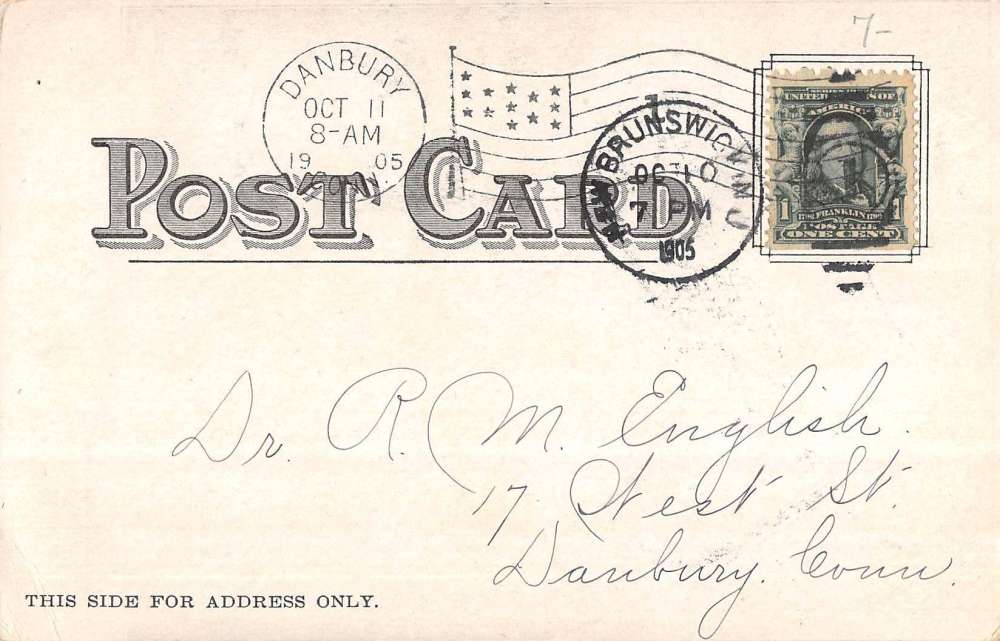 7-
DANBURY
OCT 11
8-AM
1905
CONN
POST CARD
1
NEW BRUNSWICK, N.J.
OCT 10
7 PM
1905
UNITED STATES OF
AMERICA
1 FRANKLIN 1
POSTAGE
ONE CENT
Dr. R. M. English.
17 West St.
Danbury. Conn.
THIS SIDE FOR ADDRESS ONLY.